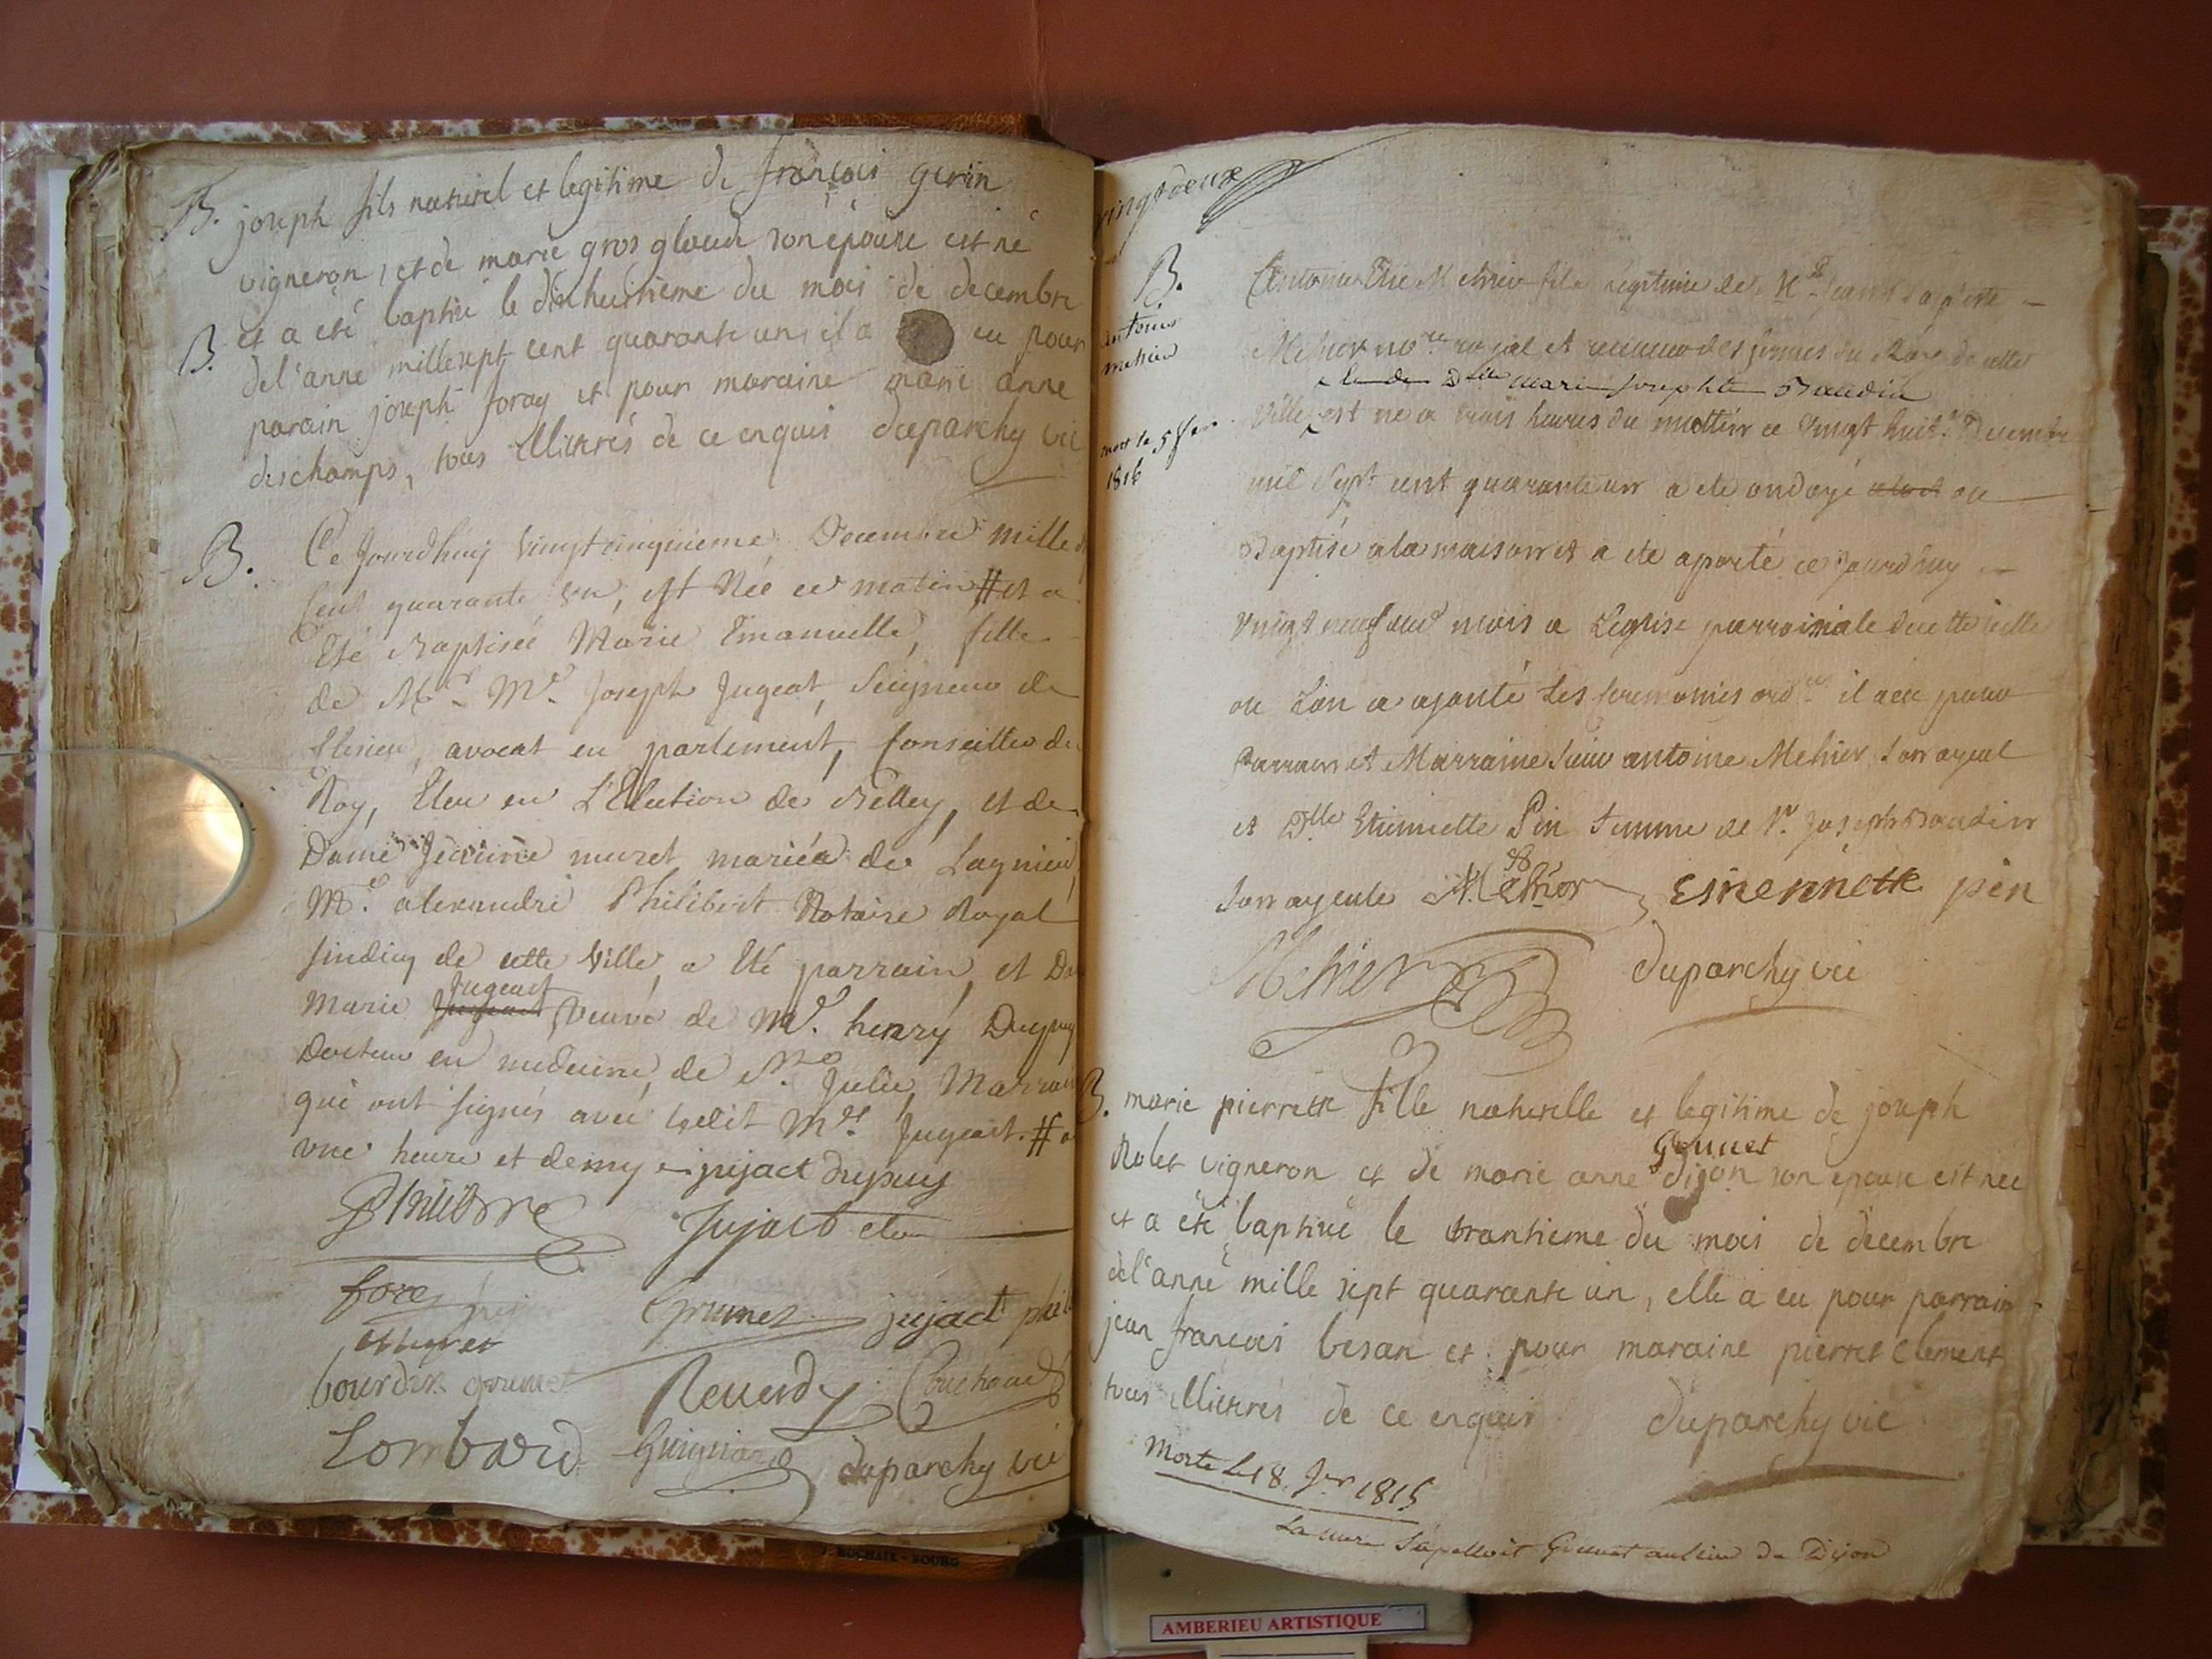 B. joseph fils naturel et legitime de françois gerin
vigneron, et de marie gros gloude son épouse est né
et a eté baptisé le dixhuitieme du mois de decembre
B. de l'anne millesept cent quarante un, il a eu pour
parain joseph foray et pour maraine marie anne
deschamps, tous illitérés de ce enquis duparchy vic
B. Ce Jourdhuy vingtcinquieme Decembre mille
Cent quarante un, est Née ce matin # et a
Eté Baptisée Marie Emanuelle, fille
de Mr. Me. Joseph Jugeat, Seigneur de
avocat en parlement, Conseiller du
Roy, Eleu en L'Election de Belley, et de
Dame muret mariéa de Lagnieu,
Me. alexandre Philibert Notaire Royal
sindicq de cette Ville, a Eté parrain, et
Jugeact
Marie Veuve de Me. henry Dupuy
Docteur en medecine, de Ste. Julie, Marraine
qui ont signés avec Mr. Jugeact. # a
une heure et demy jujact dupuy
Philibert Jujact eleu
forey
Grumet jujact
bourdin grumet Reverdy
Lombard Guignard duparchy vic
vingtdeux
B.
antoine
mehier
mort le 5
1816
Antoine Mehier fils legitime de
Mehier nore. royal et receveur des fermes du Roy de cette
Delle marie Josephte Baudin
Ville, est né a trois heures du mattin ce vingt huit. Decembre
mil sept cent quarante un a ete ondoyé ou
Baptisé a la maison et a ete aporté ce jourdhuy
vingt neuf dud mois a L'eglise parroissiale de cette ville
ou L'on a ajouté Les ceremonies ordres il a eu pour
Parrain et Marraine sieur antoine Mehier son ayeul
et Dlle Etiennette Pin femme de Sr. Joseph Baudin
son ayeule Mehier Etiennette pin
Mehier duparchy vic
B. marie pierrette fille naturelle et legitime de joseph
Grumet
Rolet vigneron et de marie anne dijon son épouse est née
et a été baptisé le trantieme du mois de decembre
del'anné mille sept quarante un, elle a eu pour parrain
jean françois besan et pour maraine pierret clement
tous illitérés de ce enquis duparchy vic
Morte le 18. Jer 1815
La mere s'apelloit Grumet aulieu de Dijon
ROCHAIX - BOURG
AMBERIEU ARTISTIQUE